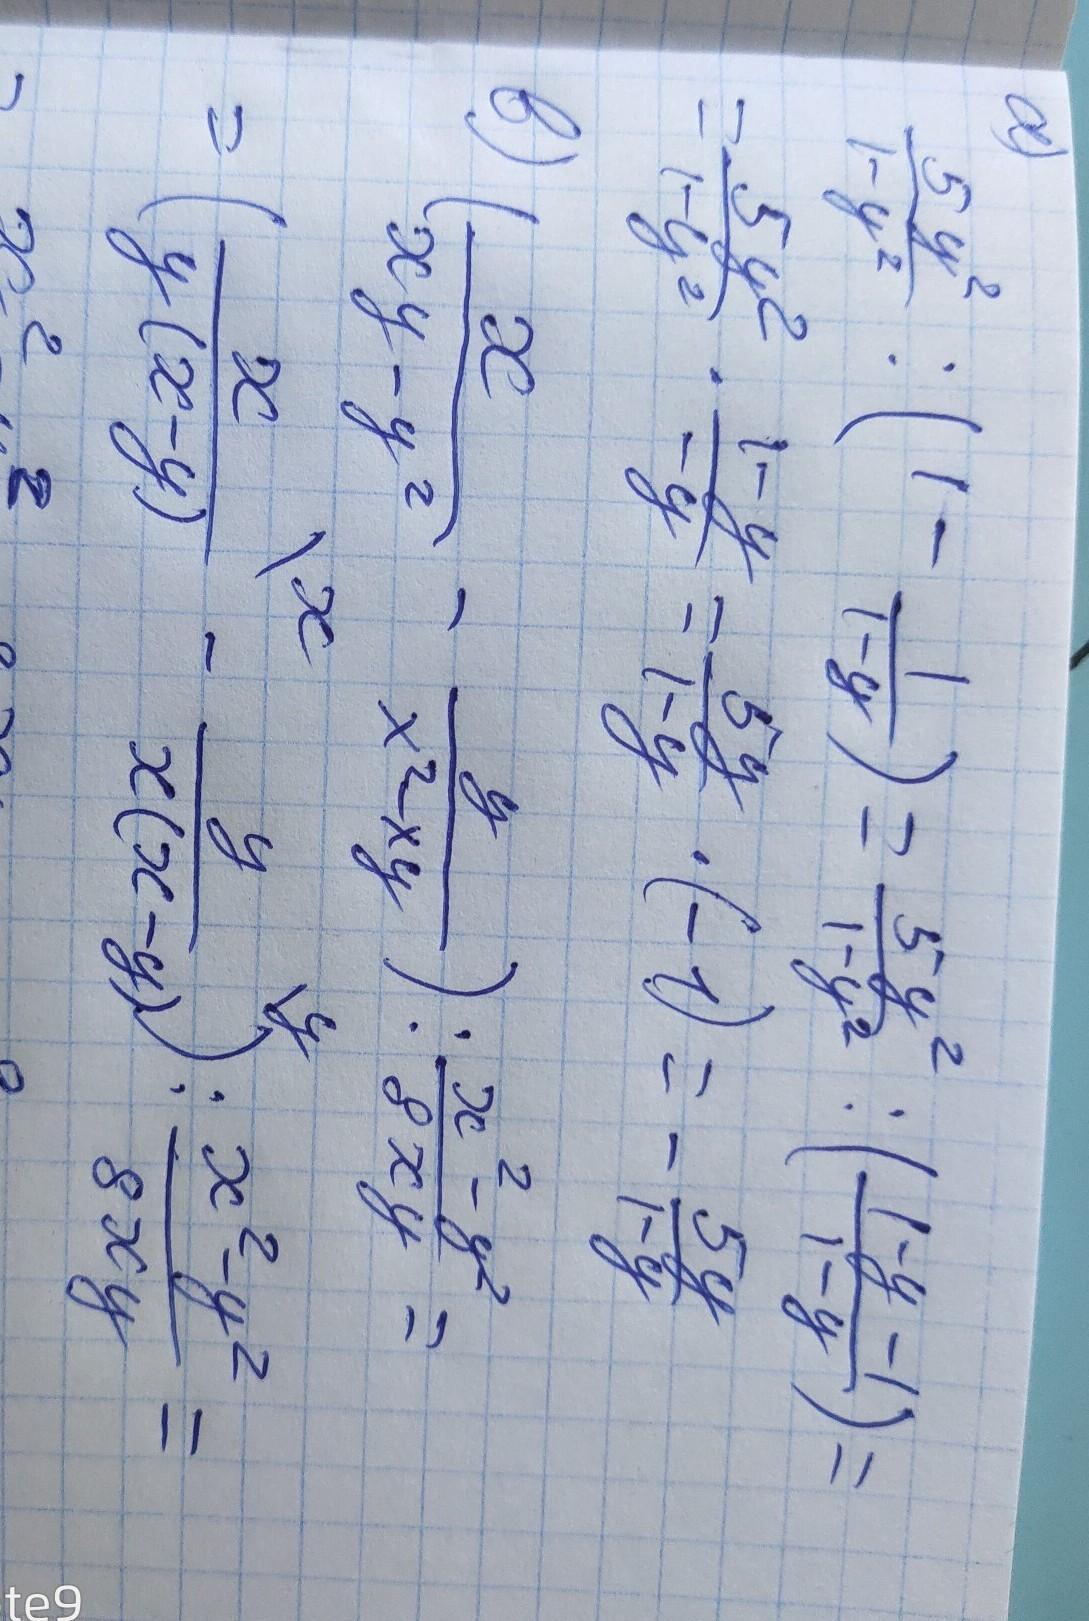 а)
5y²/(1-y²) : (1 - 1/(1-y)) = 5y²/(1-y²) : ((1-y-1)/(1-y)) =
= 5y²/(1-y²) · (1-y)/(-y) = 5y/(1-y) · (-1) = - 5y/(1-y)
в) (x/(xy-y²) - y/(x²-xy)) : (x²-y²)/(8xy) =
= (x/(y(x-y)) \x - y/(x(x-y)) \y) : (x²-y²)/(8xy) =
te9